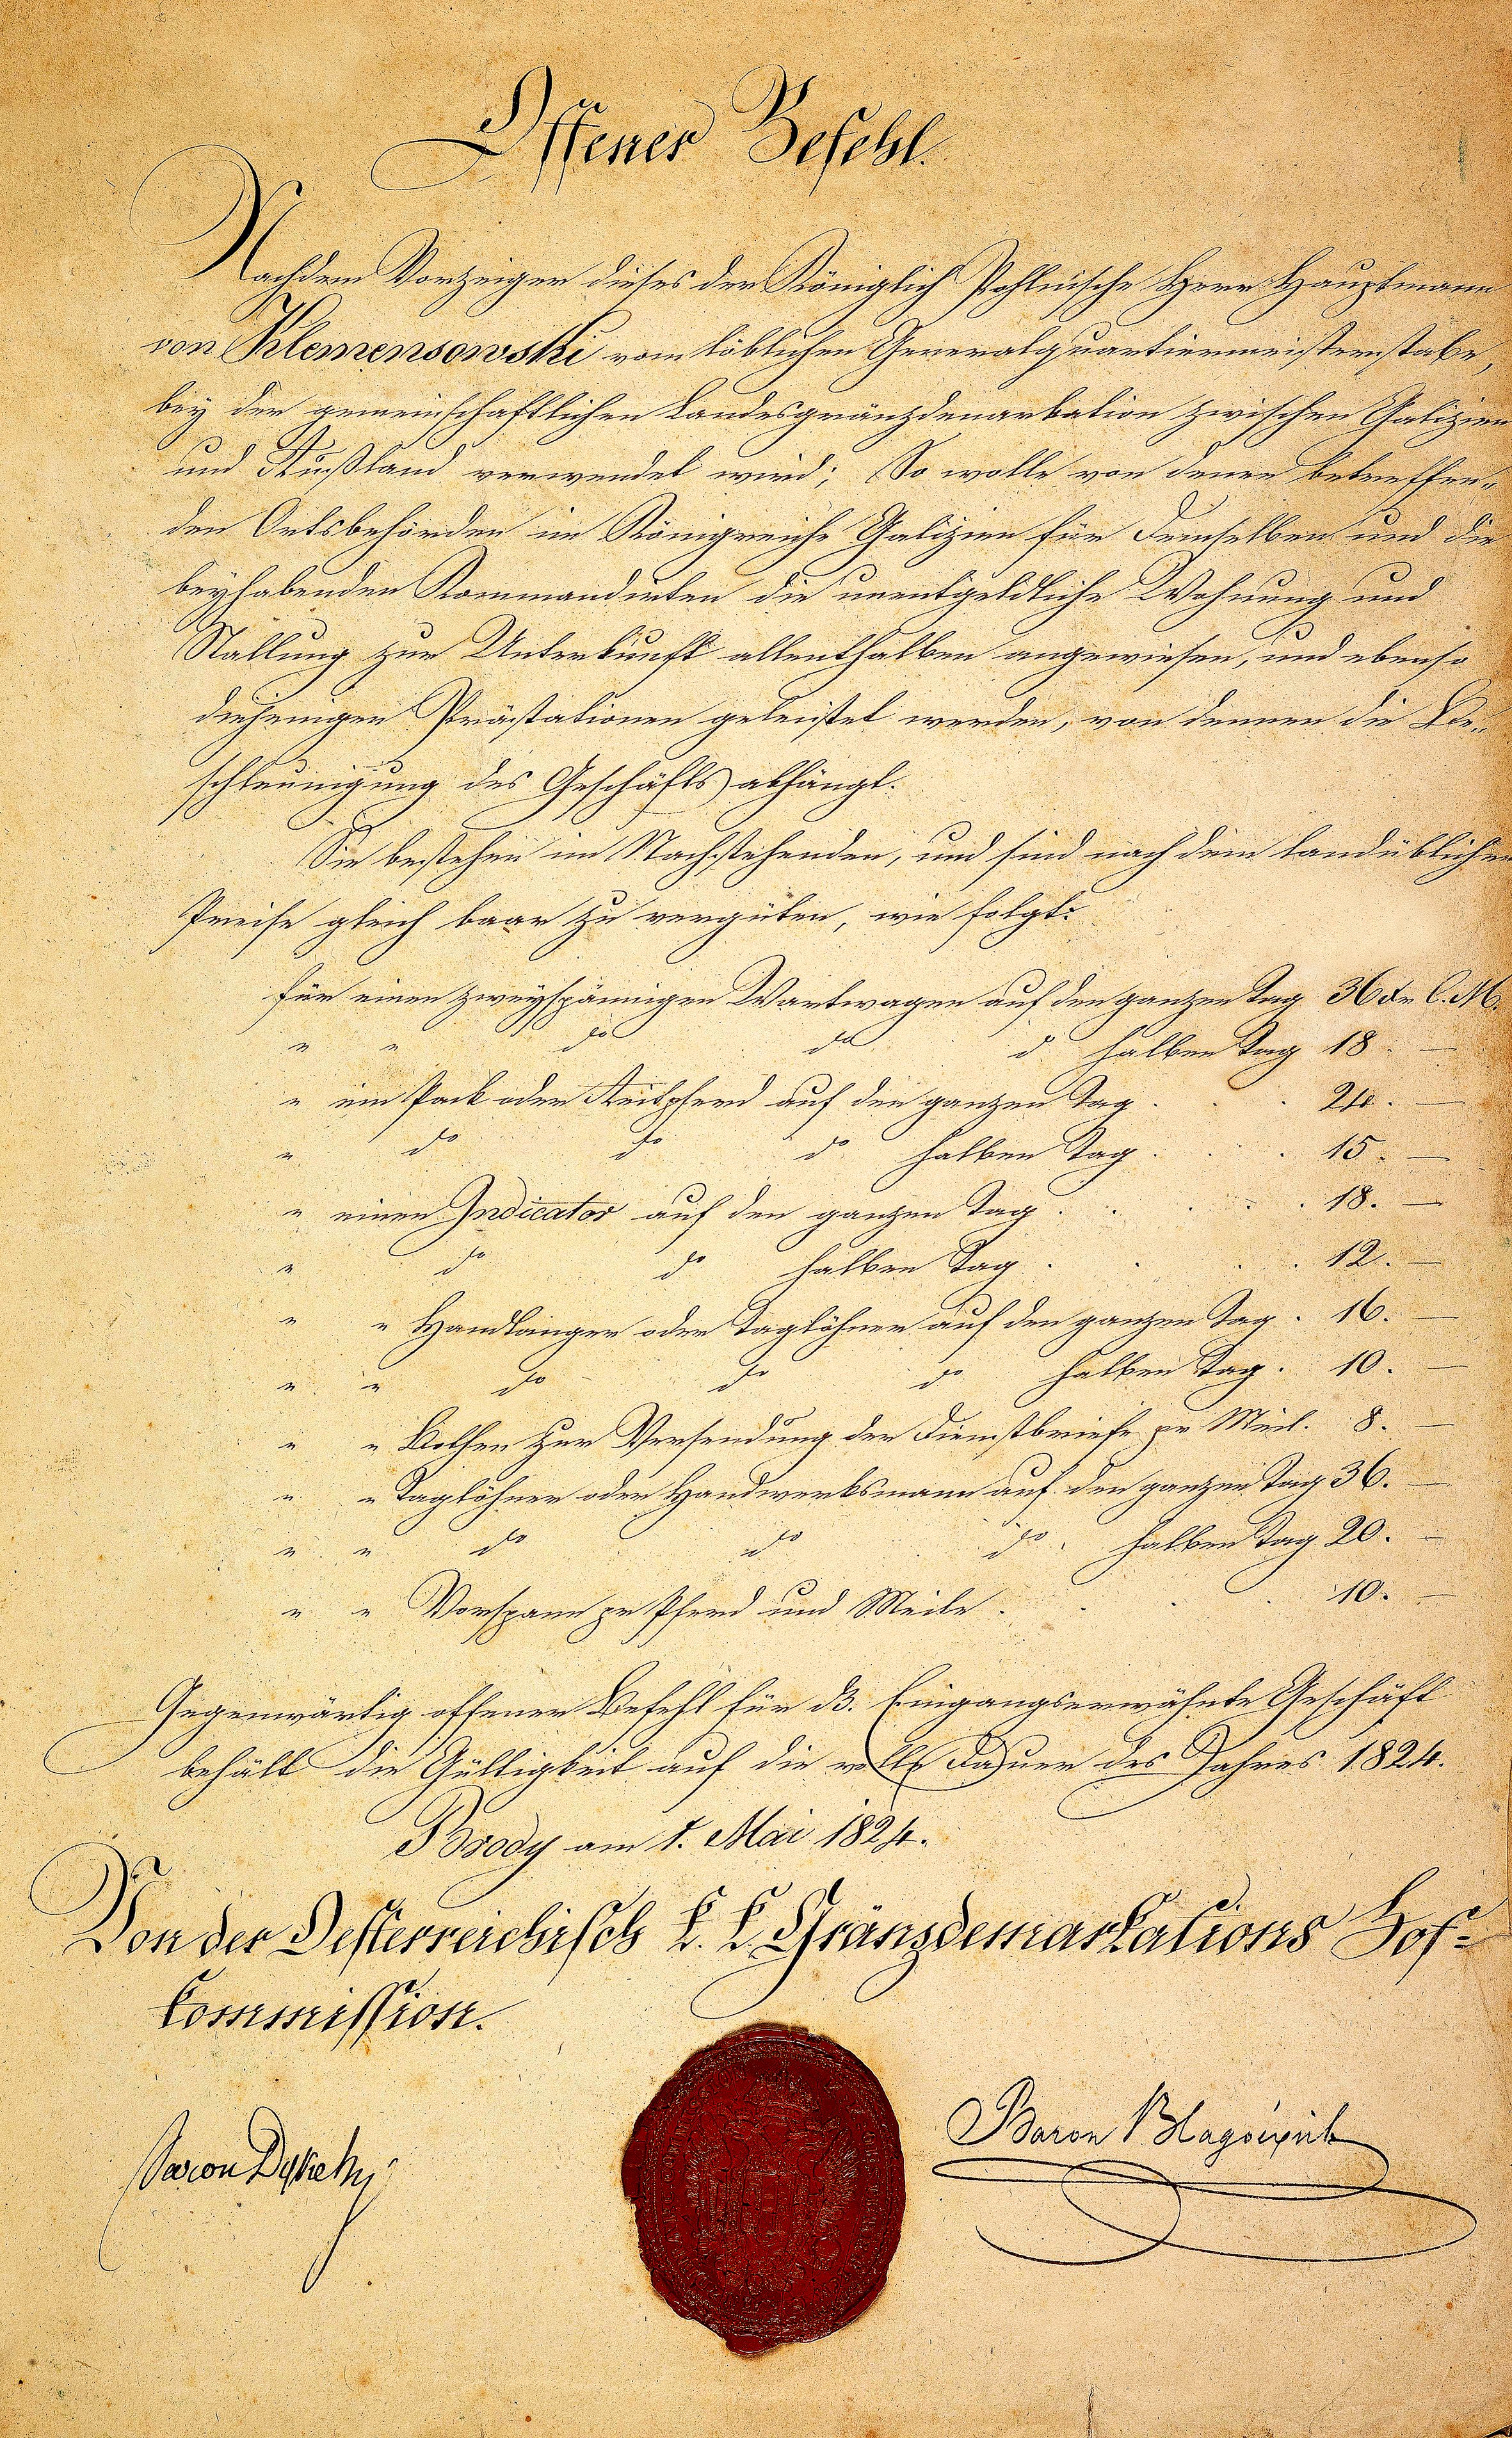 Offener Befehl.
Nachdem Vorzeiger dieses der Königlich Pohlnische Herr Hauptmann
von Klemensowski vom löblichen Generalquartiermeisterstabe,
bey der gemeinschaftlichen Landesgränzdemarkation zwischen Galizien
und Rußland verwendet wird; So wolle von denen betreffen-
den Ortsbehörden im Königreiche Galizien für denselben und die
beyhabenden Kommandirten die unentgeldliche Wohnung und
Stallung zur Unterkunft allenthalben angewiesen, und ebenso
diejenigen Prästationen geleistet werden, von dennen die Be-
schleunigung des Geschäfts abhängt.
Sie bestehen im Nachstehenden, und sind nach dem landüblichen
Preise gleich baar zu vergüten, wie folgt:
für einen zweyspännigen Wartwagen auf den ganzen Tag 36 Xr C.M.
" " do do do halben Tag 18. —
" ein Pack oder Reitpferd auf den ganzen Tag . . . 24. —
" do do do halben Tag . . . 15. —
" einen Indicator auf den ganzen Tag . . . . 18. —
" do do halben Tag . . . . 12. —
" " Handlanger oder Taglöhner auf den ganzen Tag . 16. —
" " do do do halben Tag . 10. —
" " Bothen zur Versendung der Dienstbriefe pr Meil. 8. —
" " Taglöhner oder Handwerksmann auf den ganzen Tag 36. —
" " do do do halben Tag 20. —
" " Vorspann pr Pferd und Meile . . . . 10. —
Gegenwärtig offener Befehl für dß. Eingangserwähnte Geschäft
behält die Gültigkeit auf die volle Dauer des Jahres 1824.
Brody am 1. Mai 1824.
Von der Oesterreichisch k. k. Gränzdemarkations Hof-
kommission.
Baron
Baron Blagoevich